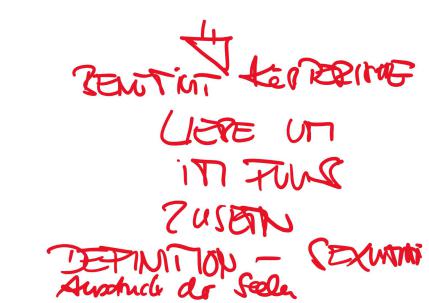 4
BENÖTIGT KÖRPERLICHE
LIEBE UM
IM FLUSS
ZU SEIN
DEFINITION - SEXUALITÄT
Ausdruck der Seelen